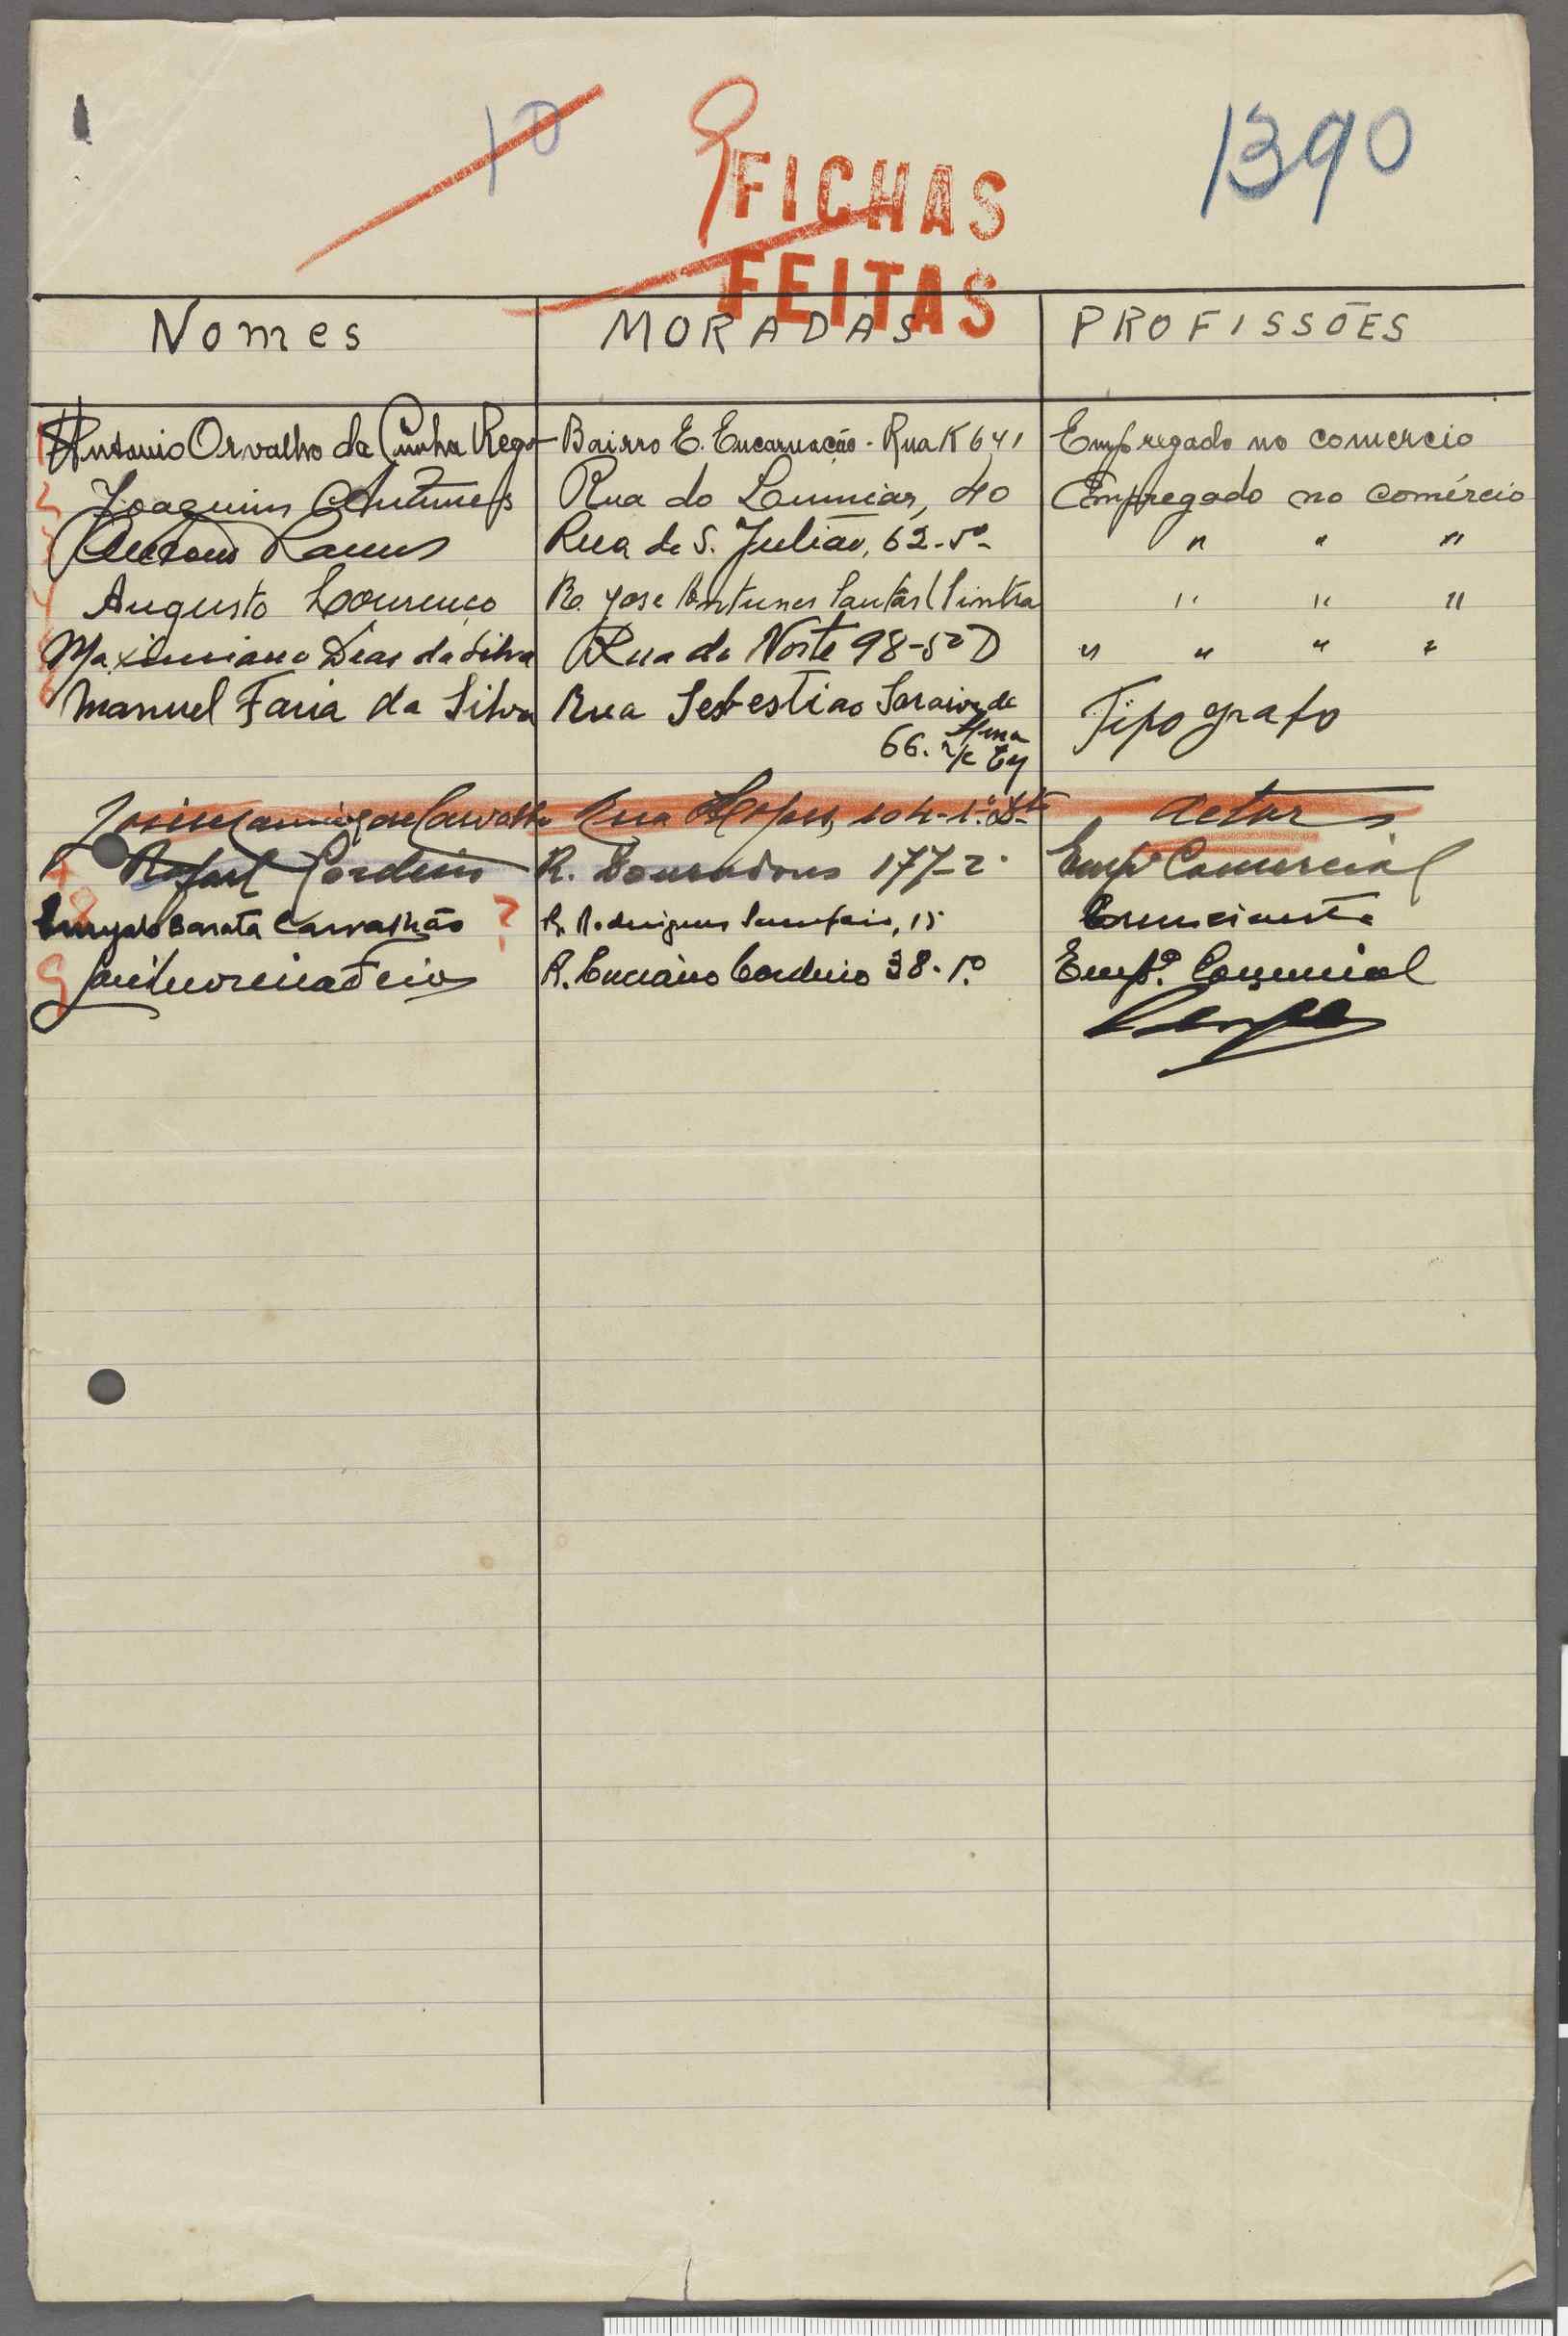 10 9 1390
FICHAS
FEITAS
Nomes MORADAS PROFISSÕES
1 Antonio Orvalho da Cunha Rego Bairro E. Encarnação - Rua K 641 Empregado no comercio
2 Joaquim Antunes Rua do Lumiar, 40 Empregado no comércio
3 Ramos Rua de S. Julião, 62-5º " " "
4 Augusto Lourenço R. José Antunes Santos (Sintra " " "
5 Maximiano Dias da Silva Rua do Norte 98-5º D " " " "
6 Manuel Faria da Silva Rua Sebestiao Saraiva de Tipografo
66. r/c Eq
de Carvalho Rua 104-1º Dtº Actor
7 Rafael Cordeiro R. Douradores 177-2º Empº Comercial
8 Barata Carvalhão ? R. Rodrigues Sampaio, 15 Comerciante
9 R. Luciano Cordeiro 38-1º Empº. Comercial